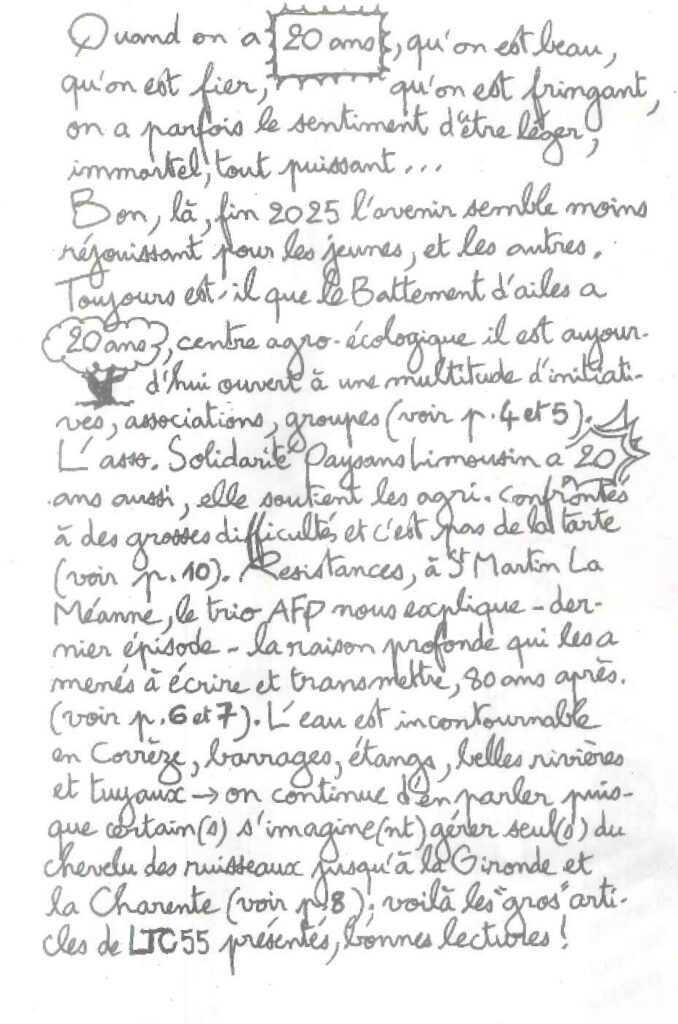 Quand on a 20 ans, qu'on est beau,
qu'on est fier, qu'on est fringant,
on a parfois le sentiment d'être léger,
immortel, tout puissant...
Bon, là, fin 2025 l'avenir semble moins
réjouissant pour les jeunes, et les autres.
Toujours est-il que le Battement d'ailes a
20 ans, centre agro-écologique il est aujour-
d'hui ouvert à une multitude d'initiati-
ves, associations, groupes (voir p.4 et 5).
L'asso. Solidarité Paysans Limousin a 20
ans aussi, elle soutient les agri. confrontés
à des grosses difficultés et c'est pas de la tarte
(voir p.10). Resistances, à St Martin La
Méanne, le trio AFP nous explique - der-
nier épisode - la raison profonde qui les a
menés à écrire et transmettre, 80 ans après.
(voir p.6 et 7). L'eau est incontournable
en Corrèze, barrages, étangs, belles rivières
et tuyaux → on continue d'en parler puis-
que certain(s) s'imagine(nt) gérer seul(s) du
chevelu des ruisseaux jusqu'à la Gironde et
la Charente (voir p.8); voilà les "gros" arti-
cles de LTC55 présentés, bonnes lectures !